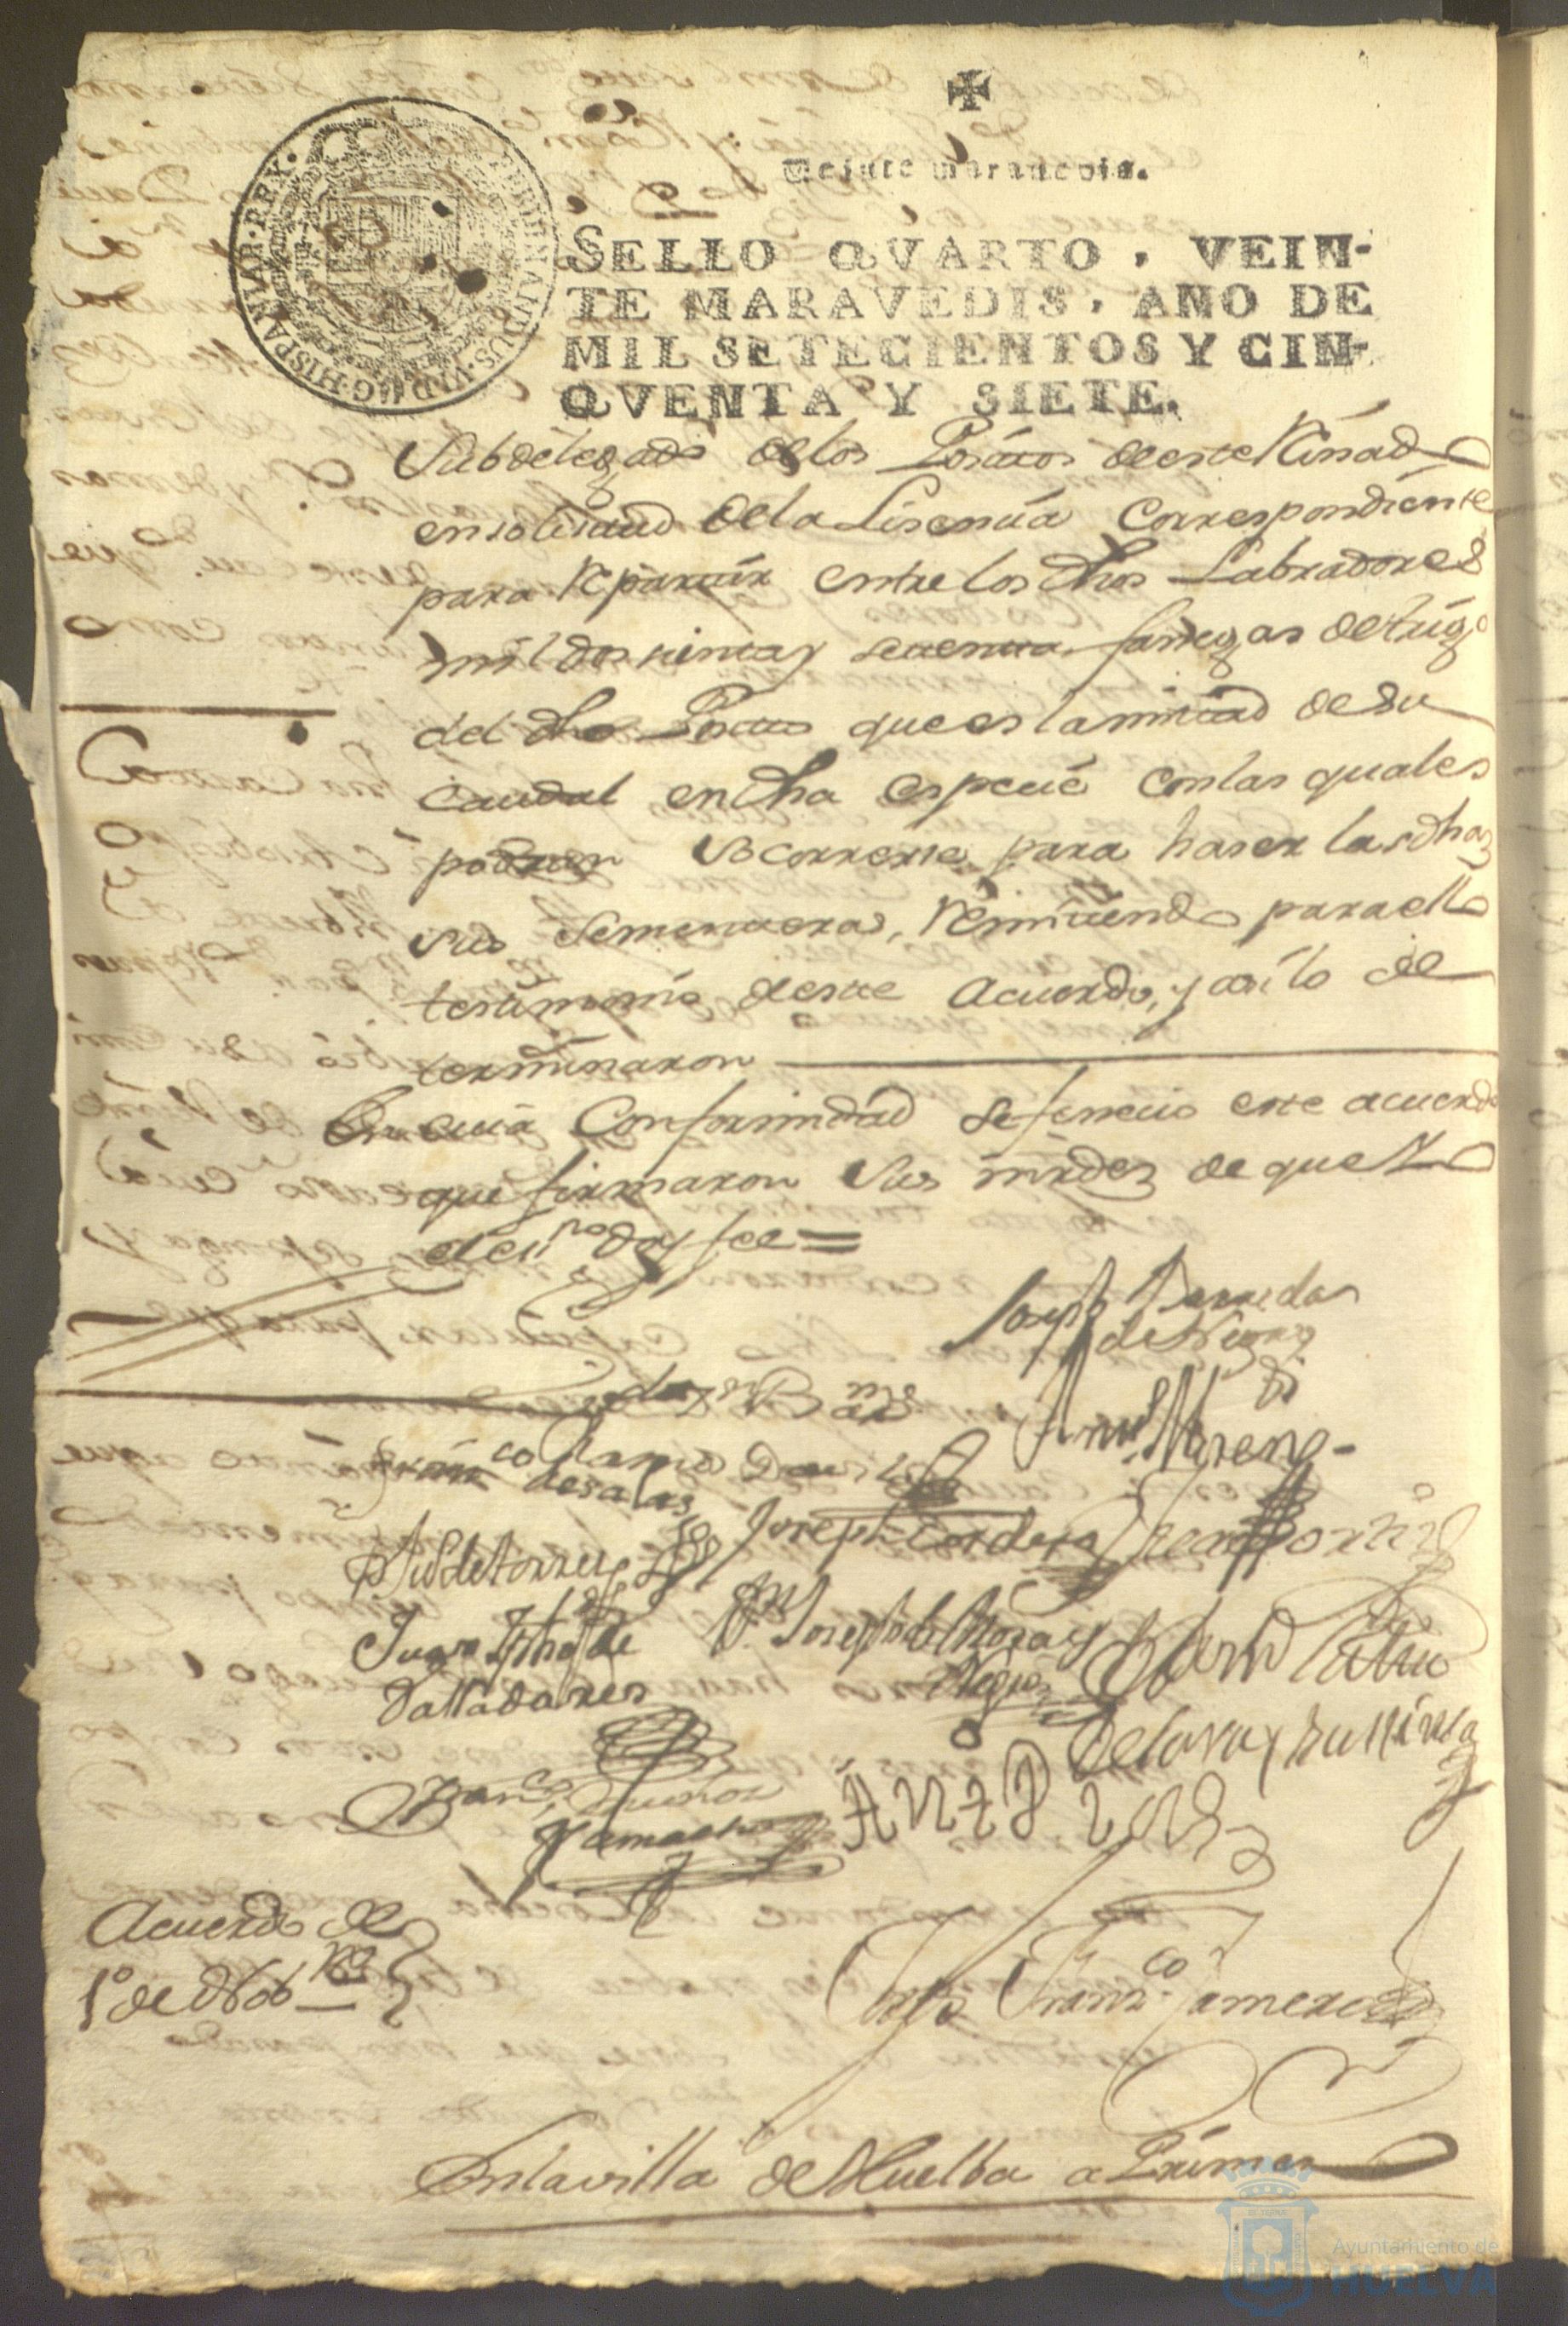 ✠
Veinte maravedis.
FERDINANDUS·VI·D·G·HISPANIAR·REX·
SELLO QVARTO, VEIN-
TE MARAVEDIS, AÑO DE
MIL SETECIENTOS Y CIN-
QVENTA Y SIETE.
Subdelegado de los Positos de este Reinado
en solisitud de la Lisencia Correspondiente
para Repartir entre los dhos Labradores
mil dosientas y setenta fanegas de trigo
del dho Posito que es la mitad de su
Caudal en dha especie con las quales
podran socorrerse para haser las dhas
sus Sementeras, Remitiendo para ello
testimonio de este Acuerdo, y asi lo de
terminaron
En cuia Conformidad se fenecio este acuerdo
que firmaron sus mrdes de que Yo
el essno doy fee =
Joseph
de
Anttt Moreno
Franco
de salas
de torres Joseph Cordero
Juan de Joseph de la Rosa y
Valladares Negron
Franco Muñoz
Camacho
Franco Jamero
Acuerdo de
1º de Nobre
En la villa de Huelba a Primero
Ayuntamiento de
HUELVA